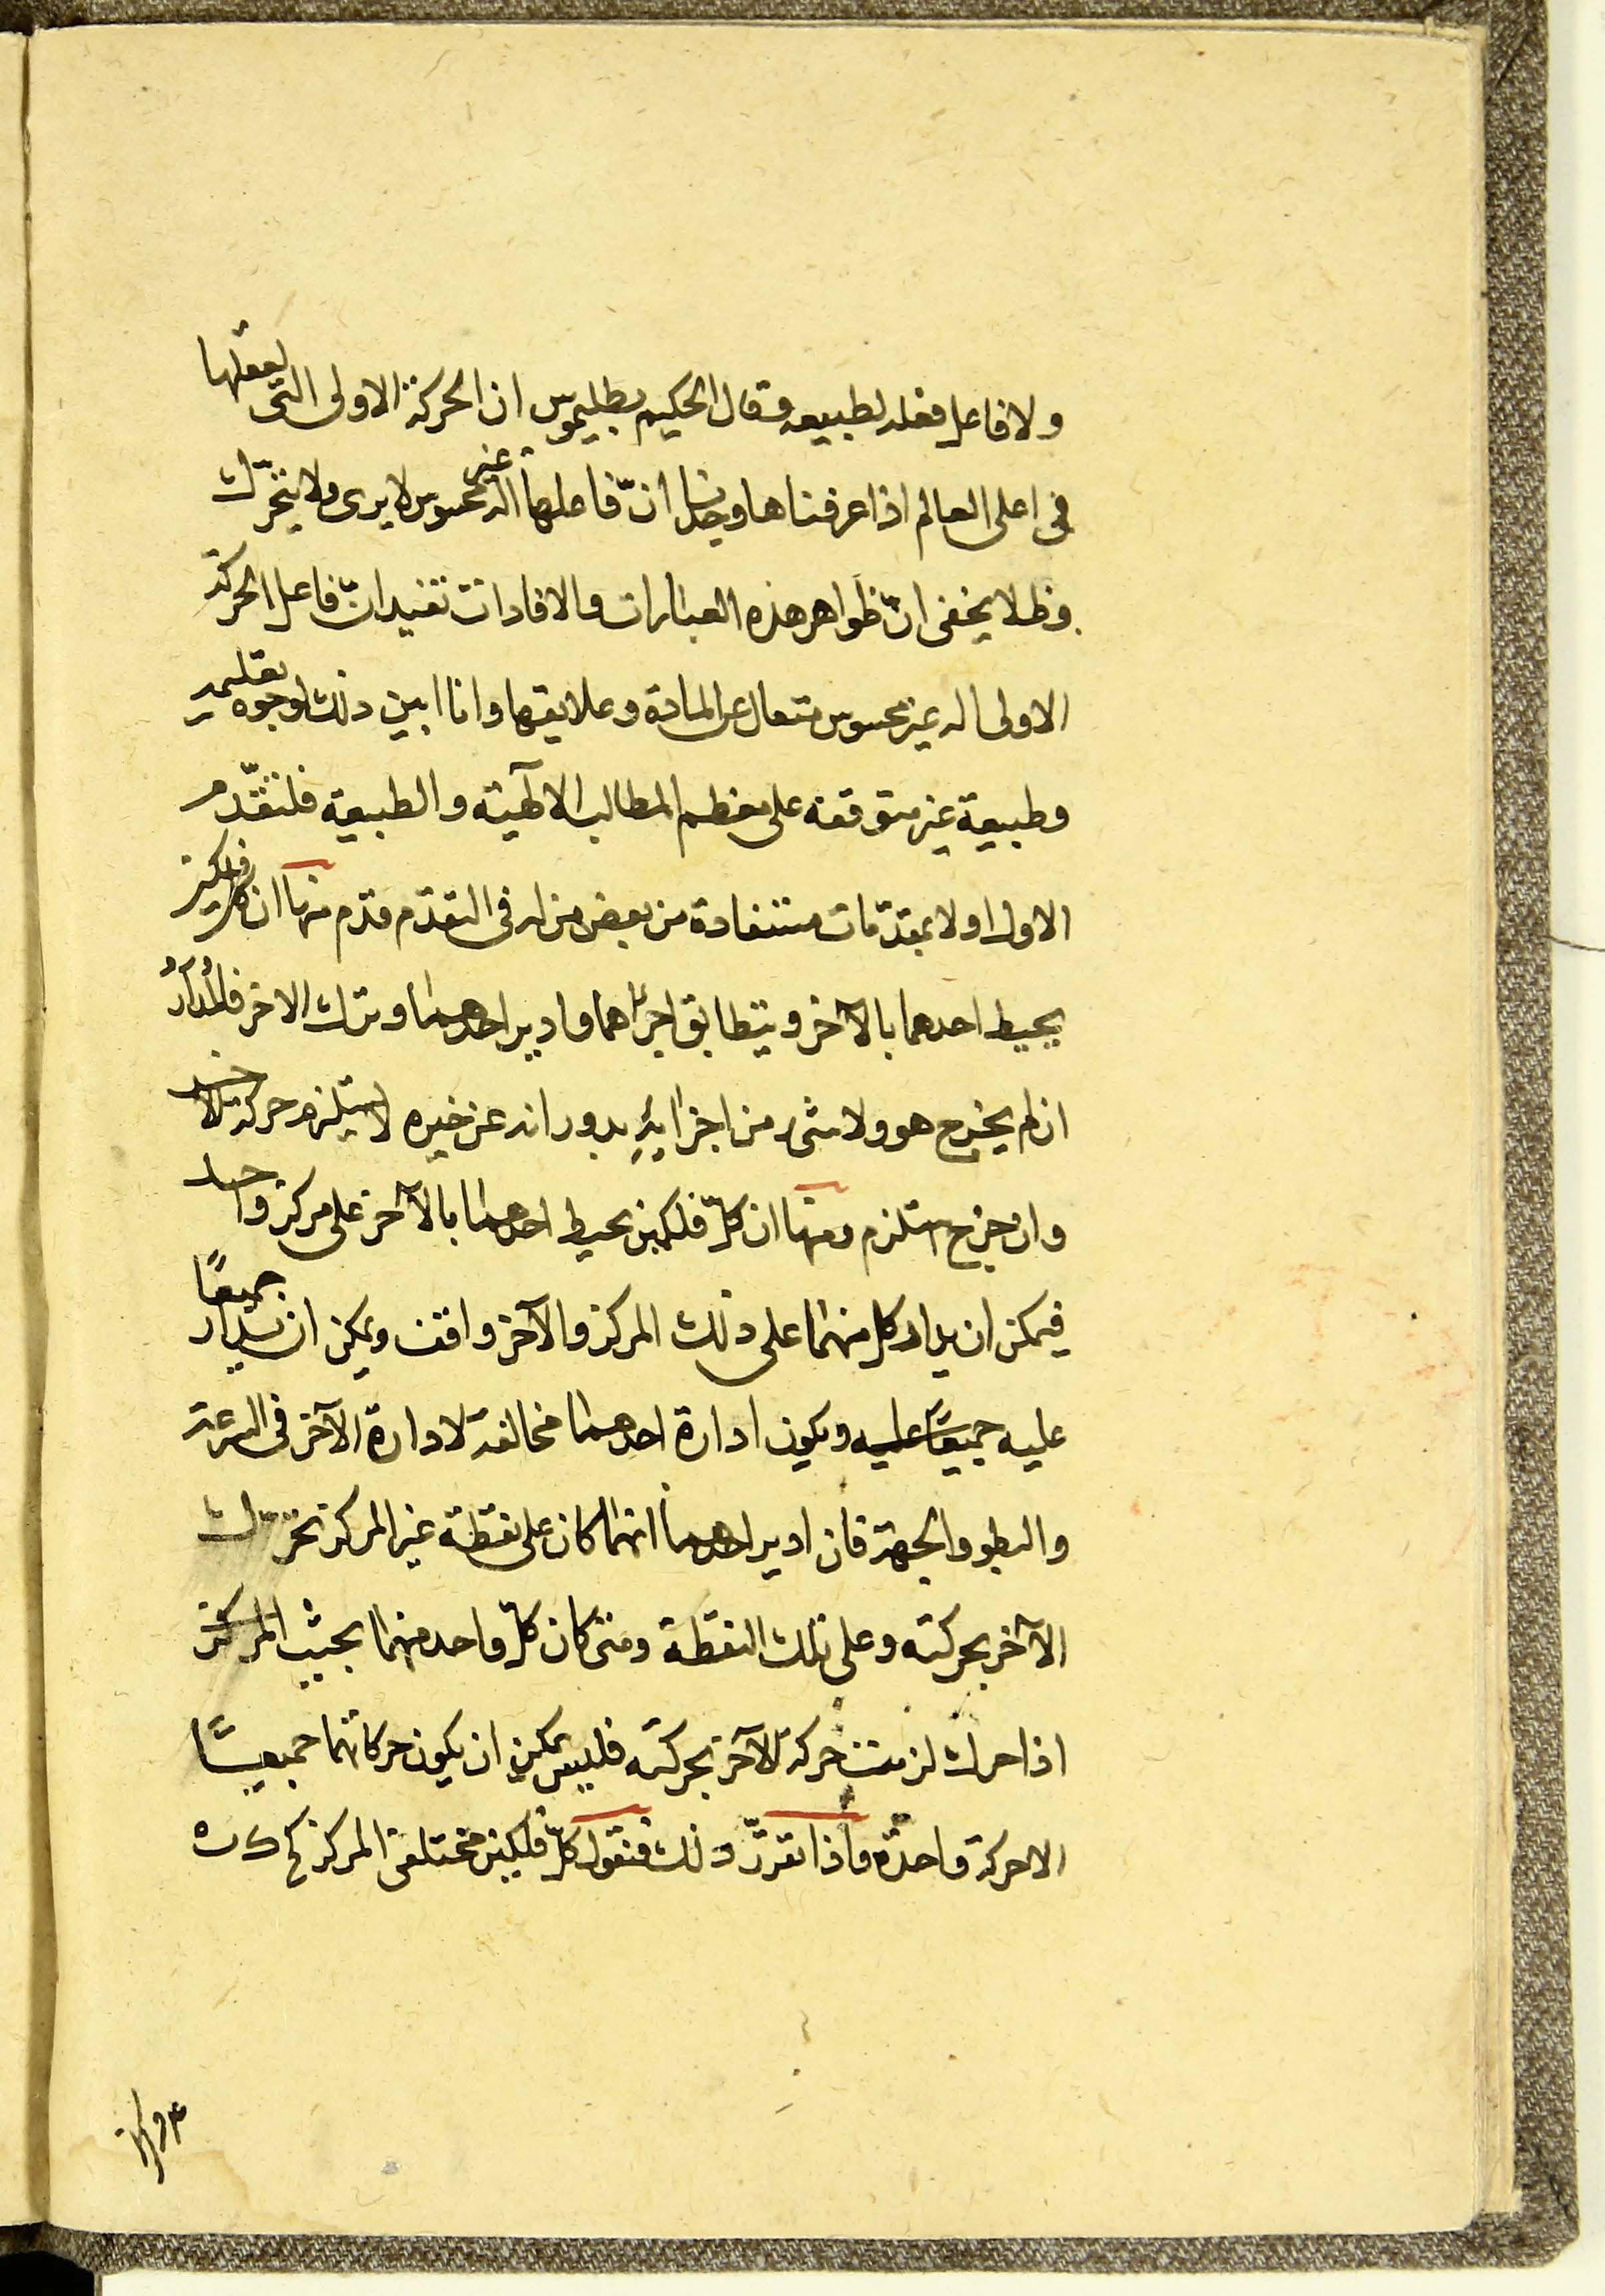 ولا فاعل فعله لطبيعه وقال الحكيم بطليموس ان الحركة الاولى التى لعقلها
فى اعلى العالم اذا عرفناها وجدنا انّ فاعلها اله غير محسوس لا يرى ولا يتحرّك
ولا يخفى انّ ظواهر هذه العبارات والافادات تفيد انّ فاعل الحركة
الاولى اله غير محسوس متعال عن المادة وعلايقها وانا ابين ذلك لوجوه تعليمية
وطبيعية غير متوقفه على معظم المطالب الالهية والطبيعية فلنقدّم
الاول اولا بمقدّمات مستفادة من بعض من له فى التقدّم قدم منها ان كل فلكين
يحيط احدهما بالآخر ويتطابق اجزاهما وادير احدهما وترك الاخر فالمُدارُ
ان لم يخرج هو ولا شىء من اجزايهِ بدورانه عن حيزه لا يستلزم حركة الآخر
وان خرج استلزم ومنها ان كلّ فلكين يحيط احدهما بالآخر على مركز واحد
فيمكن ان يدار كل منهما على ذلك المركز والآخر واقف ويمكن ان يدار جميعًا
عليه جميعًا عليه ويكون ادارة احدهما مخالفة لادارة الآخر فى السرعة
والبطو والجهة فان ادير احدهما ايهما كان على نقطة غير المركز تحرّك
الآخر بحركته وعلى تلك النقطة ومتى كان كلّ واحد منهما بحيث المركز
اذا حرك لزمت حركة الآخر بحركته فليس يمكن ان يكون حركاتهما جميعًا
الا حركة واحدة واذا تقرّر ذلك فنقول كلّ فلكين مختلفى المركز